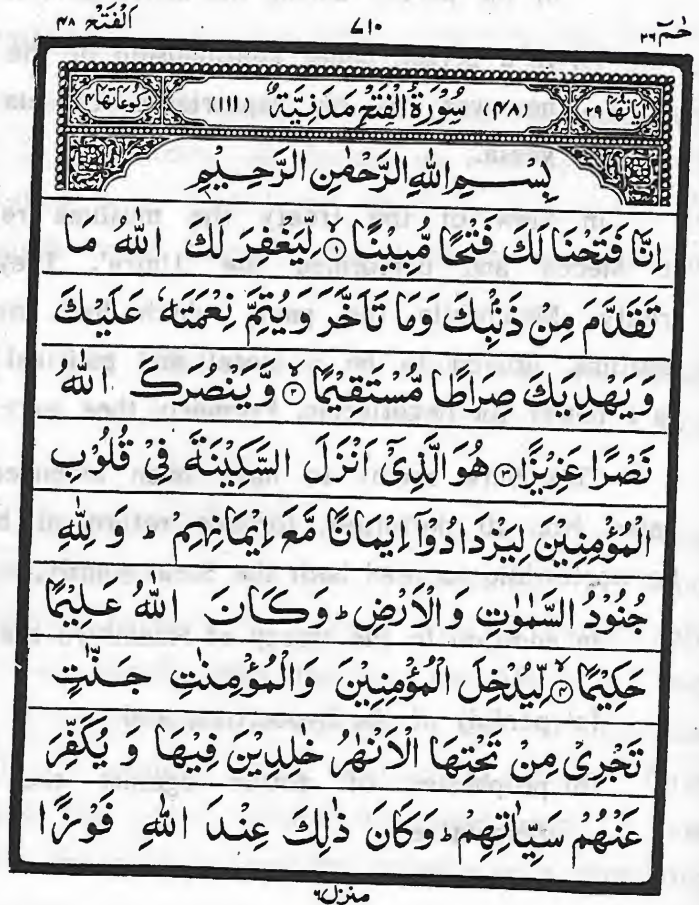 حٰمٓ ٢٦ ٧١٠ الفتح ٤٨
اٰيَاتُهَا ٢٩ (٤٨) سُوْرَةُ الْفَتْحِ مَدَنِيَّةٌ (١١١) رُكُوْعَاتُهَا ٤
بِسْــمِ اللّٰهِ الرَّحْمٰنِ الرَّحِـيْمِ
اِنَّا فَتَحْنَا لَكَ فَتْحًا مُّبِيْنًا ۙ﴿۱﴾ لِّيَغْفِرَ لَكَ اللّٰهُ مَا
تَقَدَّمَ مِنْ ذَنْۢبِكَ وَمَا تَاَخَّرَ وَيُتِمَّ نِعْمَتَهٗ عَلَيْكَ
وَيَهْدِيَكَ صِرَاطًا مُّسْتَقِيْمًا ۙ﴿۲﴾ وَّيَنْصُرَكَ اللّٰهُ
نَصْرًا عَزِيْزًا ﴿۳﴾ هُوَ الَّذِيْٓ اَنْزَلَ السَّكِيْنَةَ فِيْ قُلُوْبِ
الْمُؤْمِنِيْنَ لِيَزْدَادُوْٓا اِيْمَانًا مَّعَ اِيْمَانِهِمْ ؕ وَلِلّٰهِ
جُنُوْدُ السَّمٰوٰتِ وَالْاَرْضِ ؕ وَكَانَ اللّٰهُ عَلِيْمًا
حَكِيْمًا ۙ﴿۴﴾ لِّيُدْخِلَ الْمُؤْمِنِيْنَ وَالْمُؤْمِنٰتِ جَنّٰتٍ
تَجْرِيْ مِنْ تَحْتِهَا الْاَنْهٰرُ خٰلِدِيْنَ فِيْهَا وَيُكَفِّرَ
عَنْهُمْ سَيِّاٰتِهِمْ ؕ وَكَانَ ذٰلِكَ عِنْدَ اللّٰهِ فَوْزًا
منزل ٦